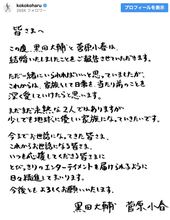 kokokoharu
プロフィールを表示
皆さまへ
この度、黒田大輔と菅原小春は、
結婚いたしましたことをご報告させていただきます。
ただ一緒にいられればいいと思っていましたが、
これからは、家族として日常を当たり前のことを
深く愛していけたらと思います。
まだまだ未熟な2人ではありますが
少しでも地球に優しい家族になっていきたいです。
今までお世話になってきた皆さま、
これからお世話になる皆さま、
いつも応援してくださる皆さまに
とびっきりのエンターテイメントを届けられるように
日々精進してまいります。
今後ともよろしくお願いいたします。
黒田大輔 菅原小春